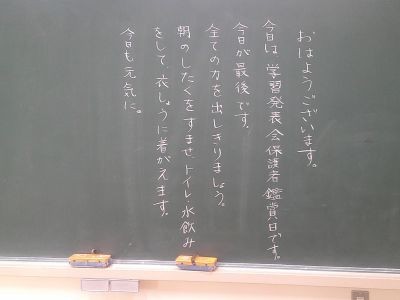 おはようございます。
今日は、学習発表会保護者鑑賞日です。
今日が最後です。
全ての力を出しきりましょう。
朝のしたくをすませ、トイレ・水飲み
をして、衣しょうに着がえます。
今日も元気に。